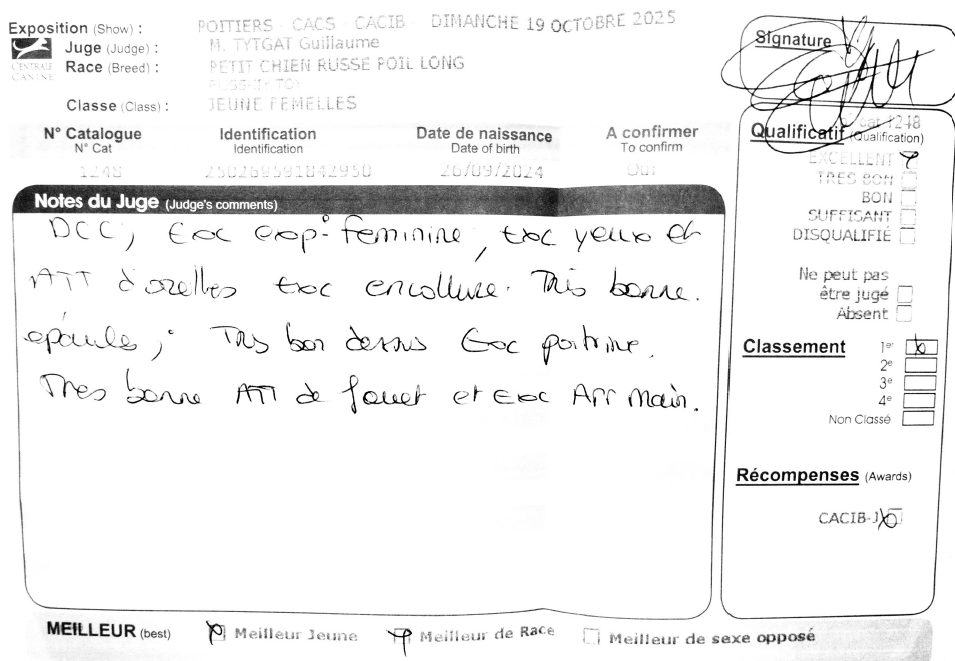 Exposition (Show) : POITIERS - CACS - CACIB - DIMANCHE 19 OCTOBRE 2025
Juge (Judge) : M. TYTGAT Guillaume
CENTRALE CANINE
Race (Breed) : PETIT CHIEN RUSSE POIL LONG
Classe (Class) : JEUNE FEMELLES
N° Catalogue Identification Date de naissance A confirmer
N° Cat Identification Date of birth To confirm
1248 250269591842950 26/09/2024 Oui
Notes du Juge (Judge's comments)
DCC, Exc exp. feminine, Exc yeux et
ATT d'oreilles Exc encolure. Très bonne.
epaules, Très bon dessus Exc poitrine.
Très bonne ATT de fouet et Exc All Main.
Signature
n° cat 1248
Qualificatif (Qualification)
EXCELLENT
TRES BON
BON
SUFFISANT
DISQUALIFIÉ
Ne peut pas
être jugé
Absent
Classement 1er
2e
3e
4e
Non Classé
Récompenses (Awards)
CACIB-J
MEILLEUR (best) Meilleur Jeune Meilleur de Race Meilleur de sexe opposé